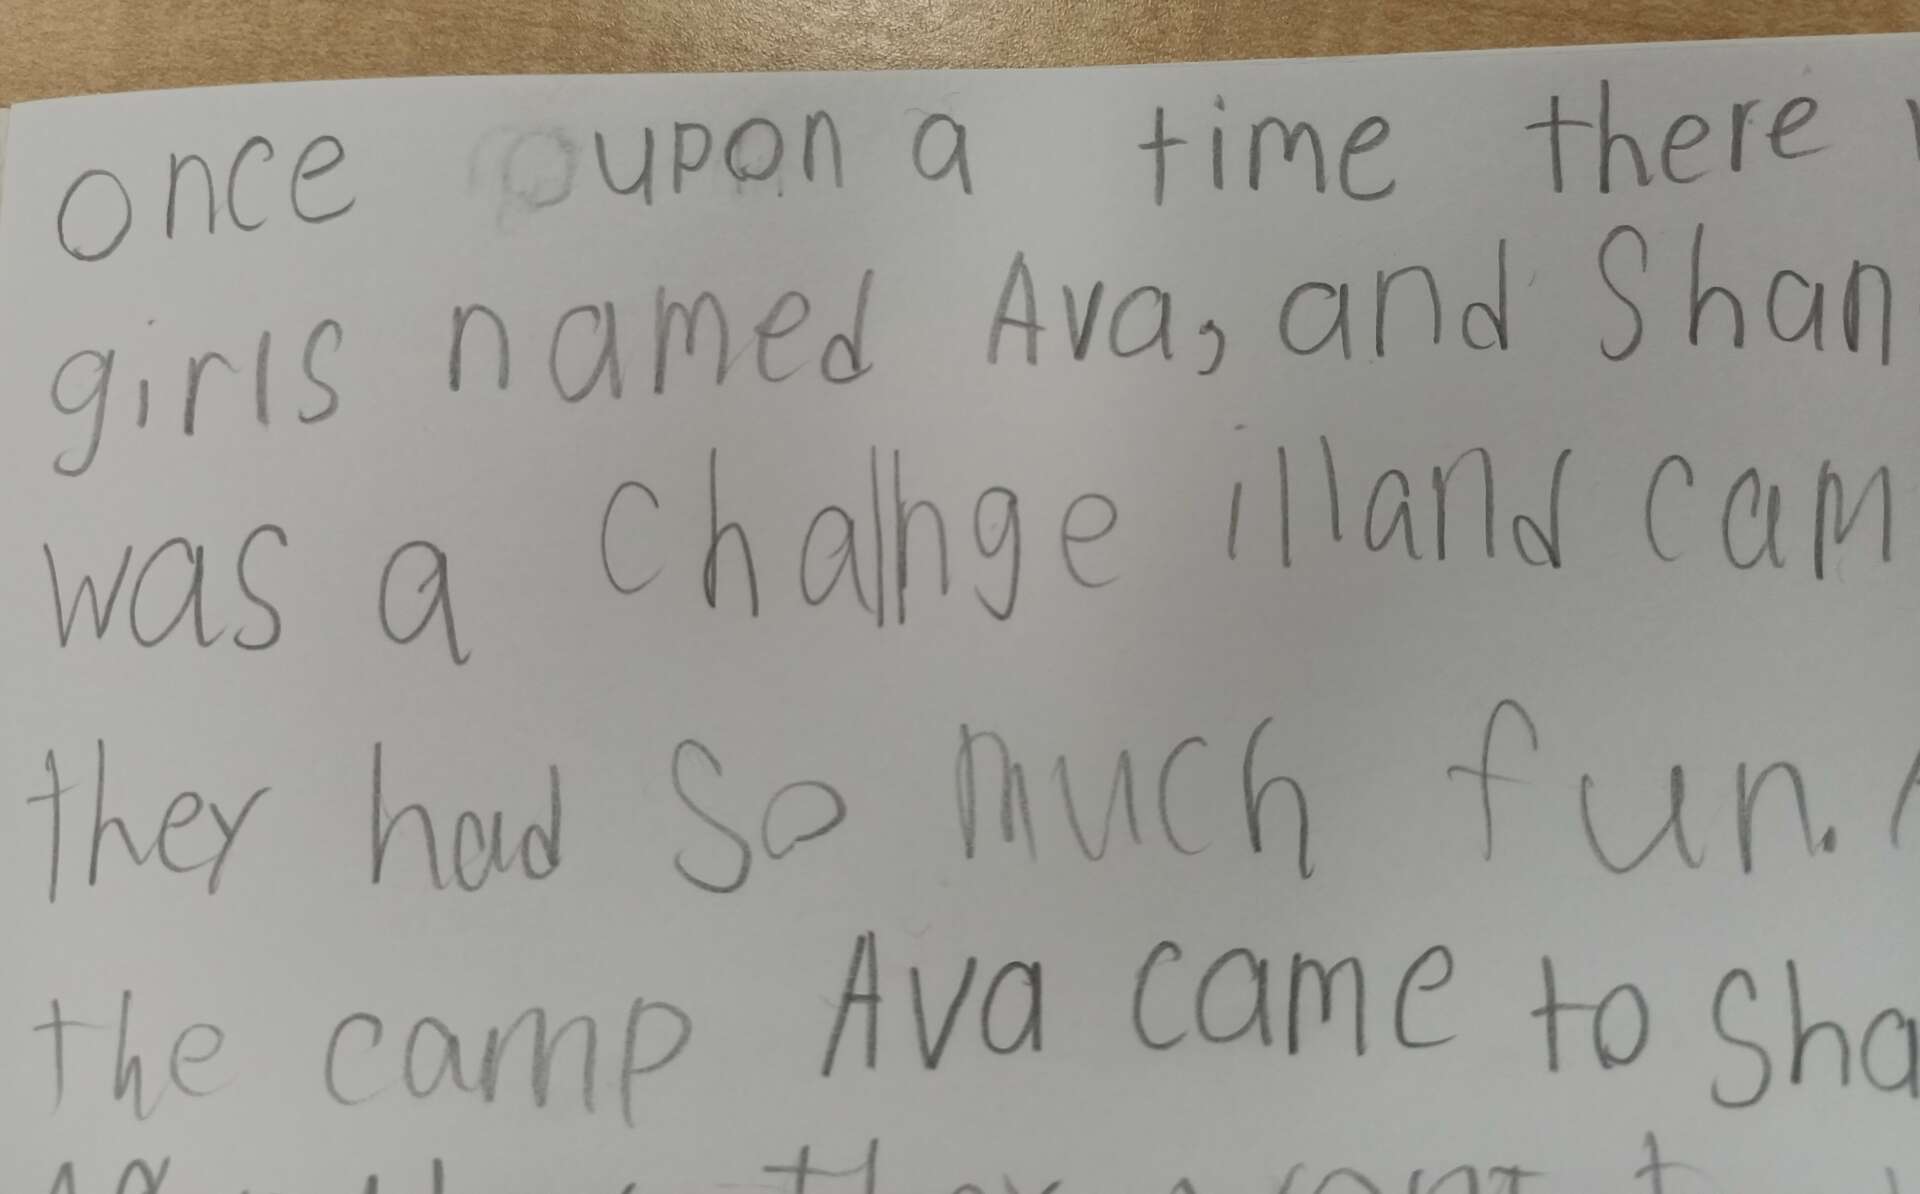 once upon a time there
girls named Ava, and Shan
was a chalnge illand cam
they had So much fun.
the camp Ava came to Sha